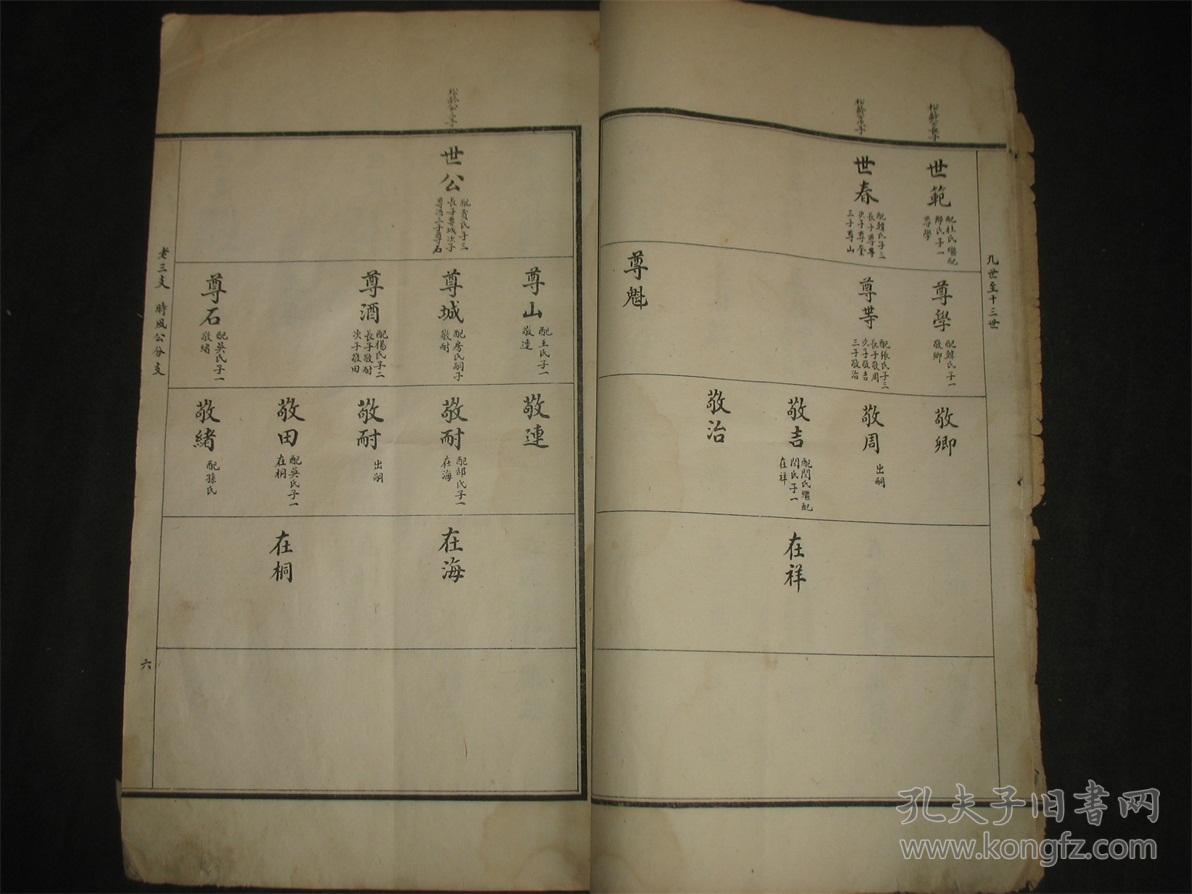 九世至十三世
松齡公長子
世範
配杜氏繼配
鄭氏子一
尊學
世春
配韓氏子三
長子尊等
次子尊奎
三子尊山
尊學
配韓氏子一
敬卿
尊等
配張氏子三
長子敬周
次子敬吉
三子敬治
尊魁
敬卿
敬周
出嗣
敬吉
配閻氏繼配
閆氏子一
在祥
敬治
在祥
世公
配賈氏子三
長子尊城次子
尊酒三子尊石
尊山
配王氏子一
敬連
尊城
配房氏嗣子
敬耐
尊酒
配楊氏子二
長子敬耐
次子敬田
尊石
配吳氏子一
敬緒
敬連
敬耐
配郜氏子一
在海
敬耐
出嗣
敬田
配吳氏子一
在桐
敬緒
配孫氏
在海
在桐
老三支 時成公分支
六
孔夫子旧书网
www.kongfz.com